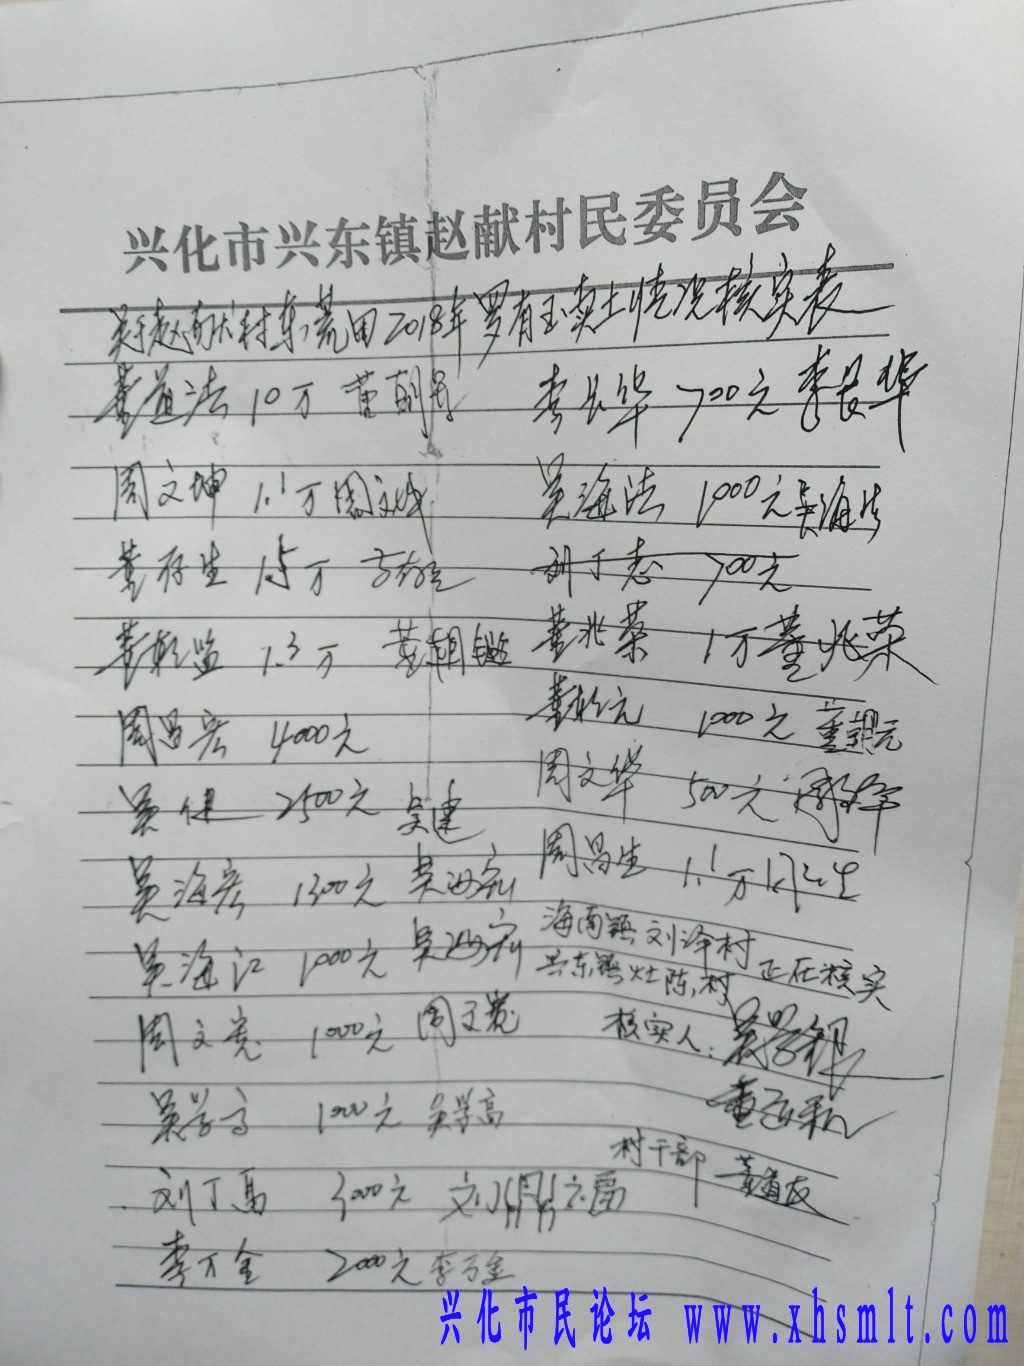 兴化市兴东镇赵献村民委员会
关于赵献村东荒田2018年罗有玉卖土情况核实表
董益法 10万 董朝
李长华 700元 李長华
周文坤 1.1万 周文坤
吴海法 1000元 吴海法
董存生 1.5万
刘丁志 700元
董朝监 1.3万 董朝鑑
董兆荣 1万 董兆荣
周昌宏 4000元
董朝元 1000元 董朝元
吴健 2500元 吴建
周文华 500元
吴海宏 1300元 吴海宏
周昌生 1.1万
吴海江 1000元 吴海宏
海南镇刘泽村
兴东镇灶陈村 正在核实
周文宽 1000元 周文宽
核实人:吴学
吴学高 1000元 吴学高
董
村干部
刘丁高 3000元
李万金 2000元 李万金
兴化市民论坛 www.xhsmlt.com